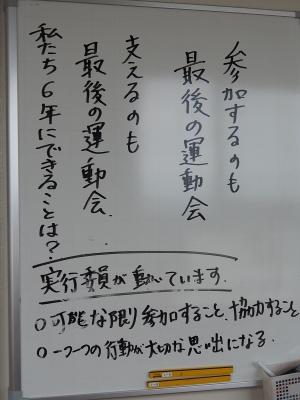 参加するのも
最後の運動会
支えるのも
最後の運動会、
私たち6年にできることは?
実行委員が動いています.
○可能な限り参加すること、協力すること
○一つ一つの行動が大切な思い出になる.